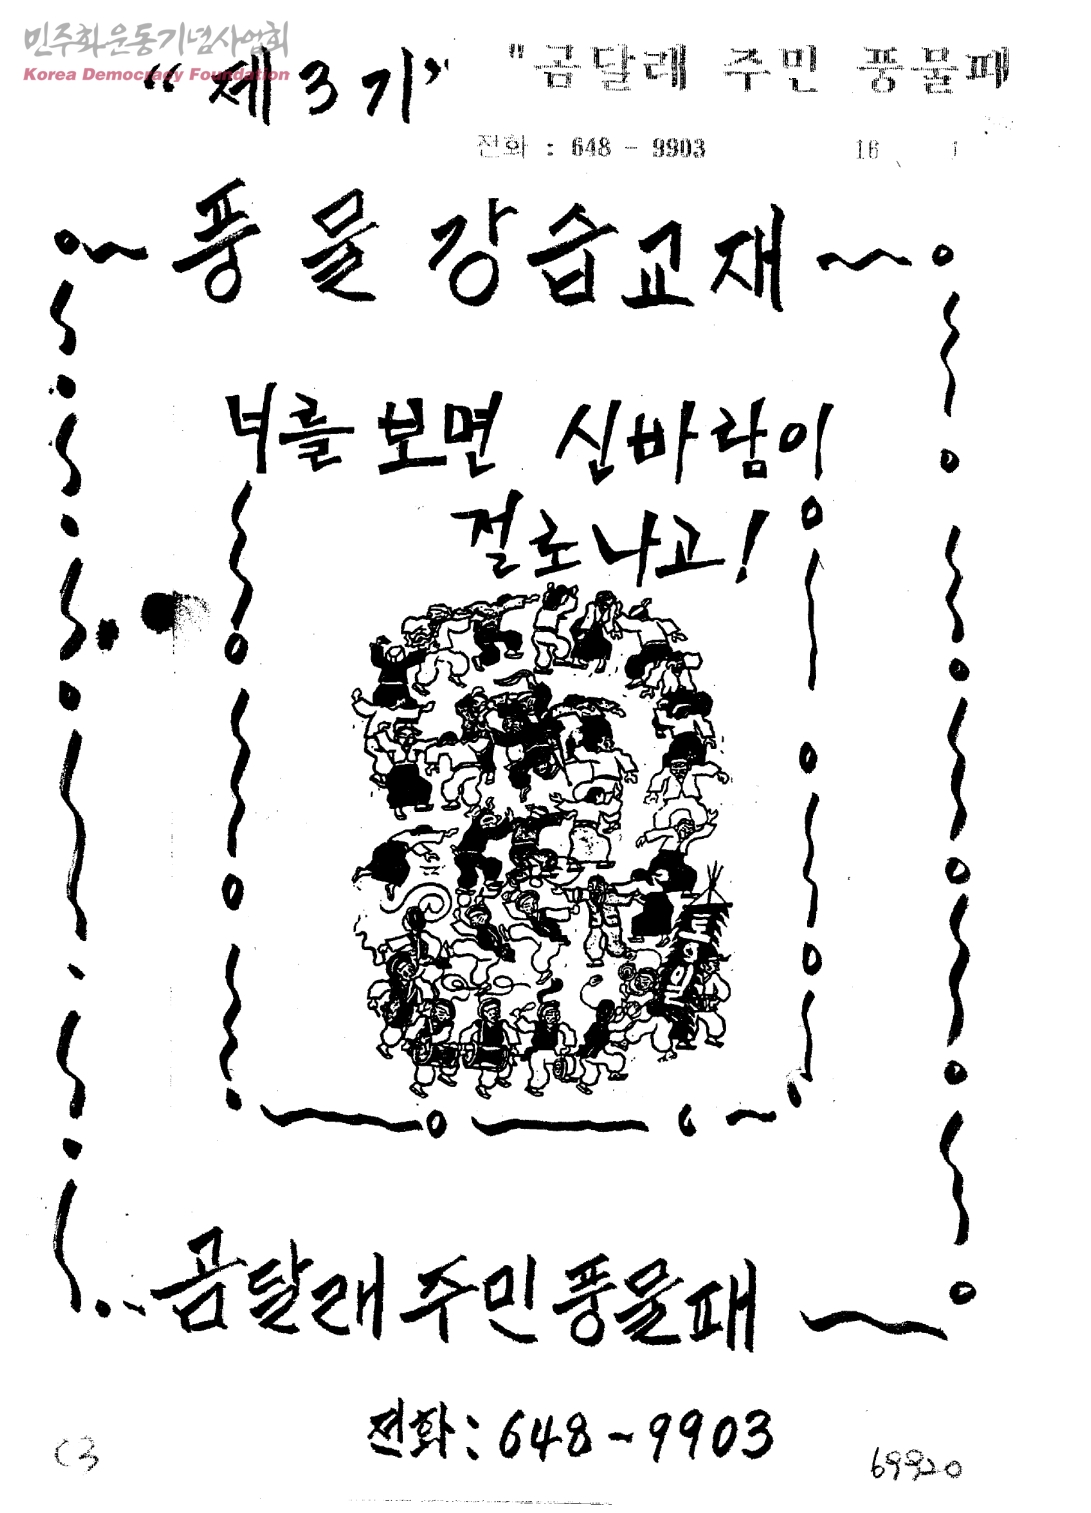 민주화운동기념사업회
Korea Democracy Foundation
“제3기” "곰달래 주민 풍물패
전화 : 648 - 9903 16
풍물강습교재
너를 보면 신바람이
절로나고!
곰달래주민풍물패
전화:648-9903
C3
69920